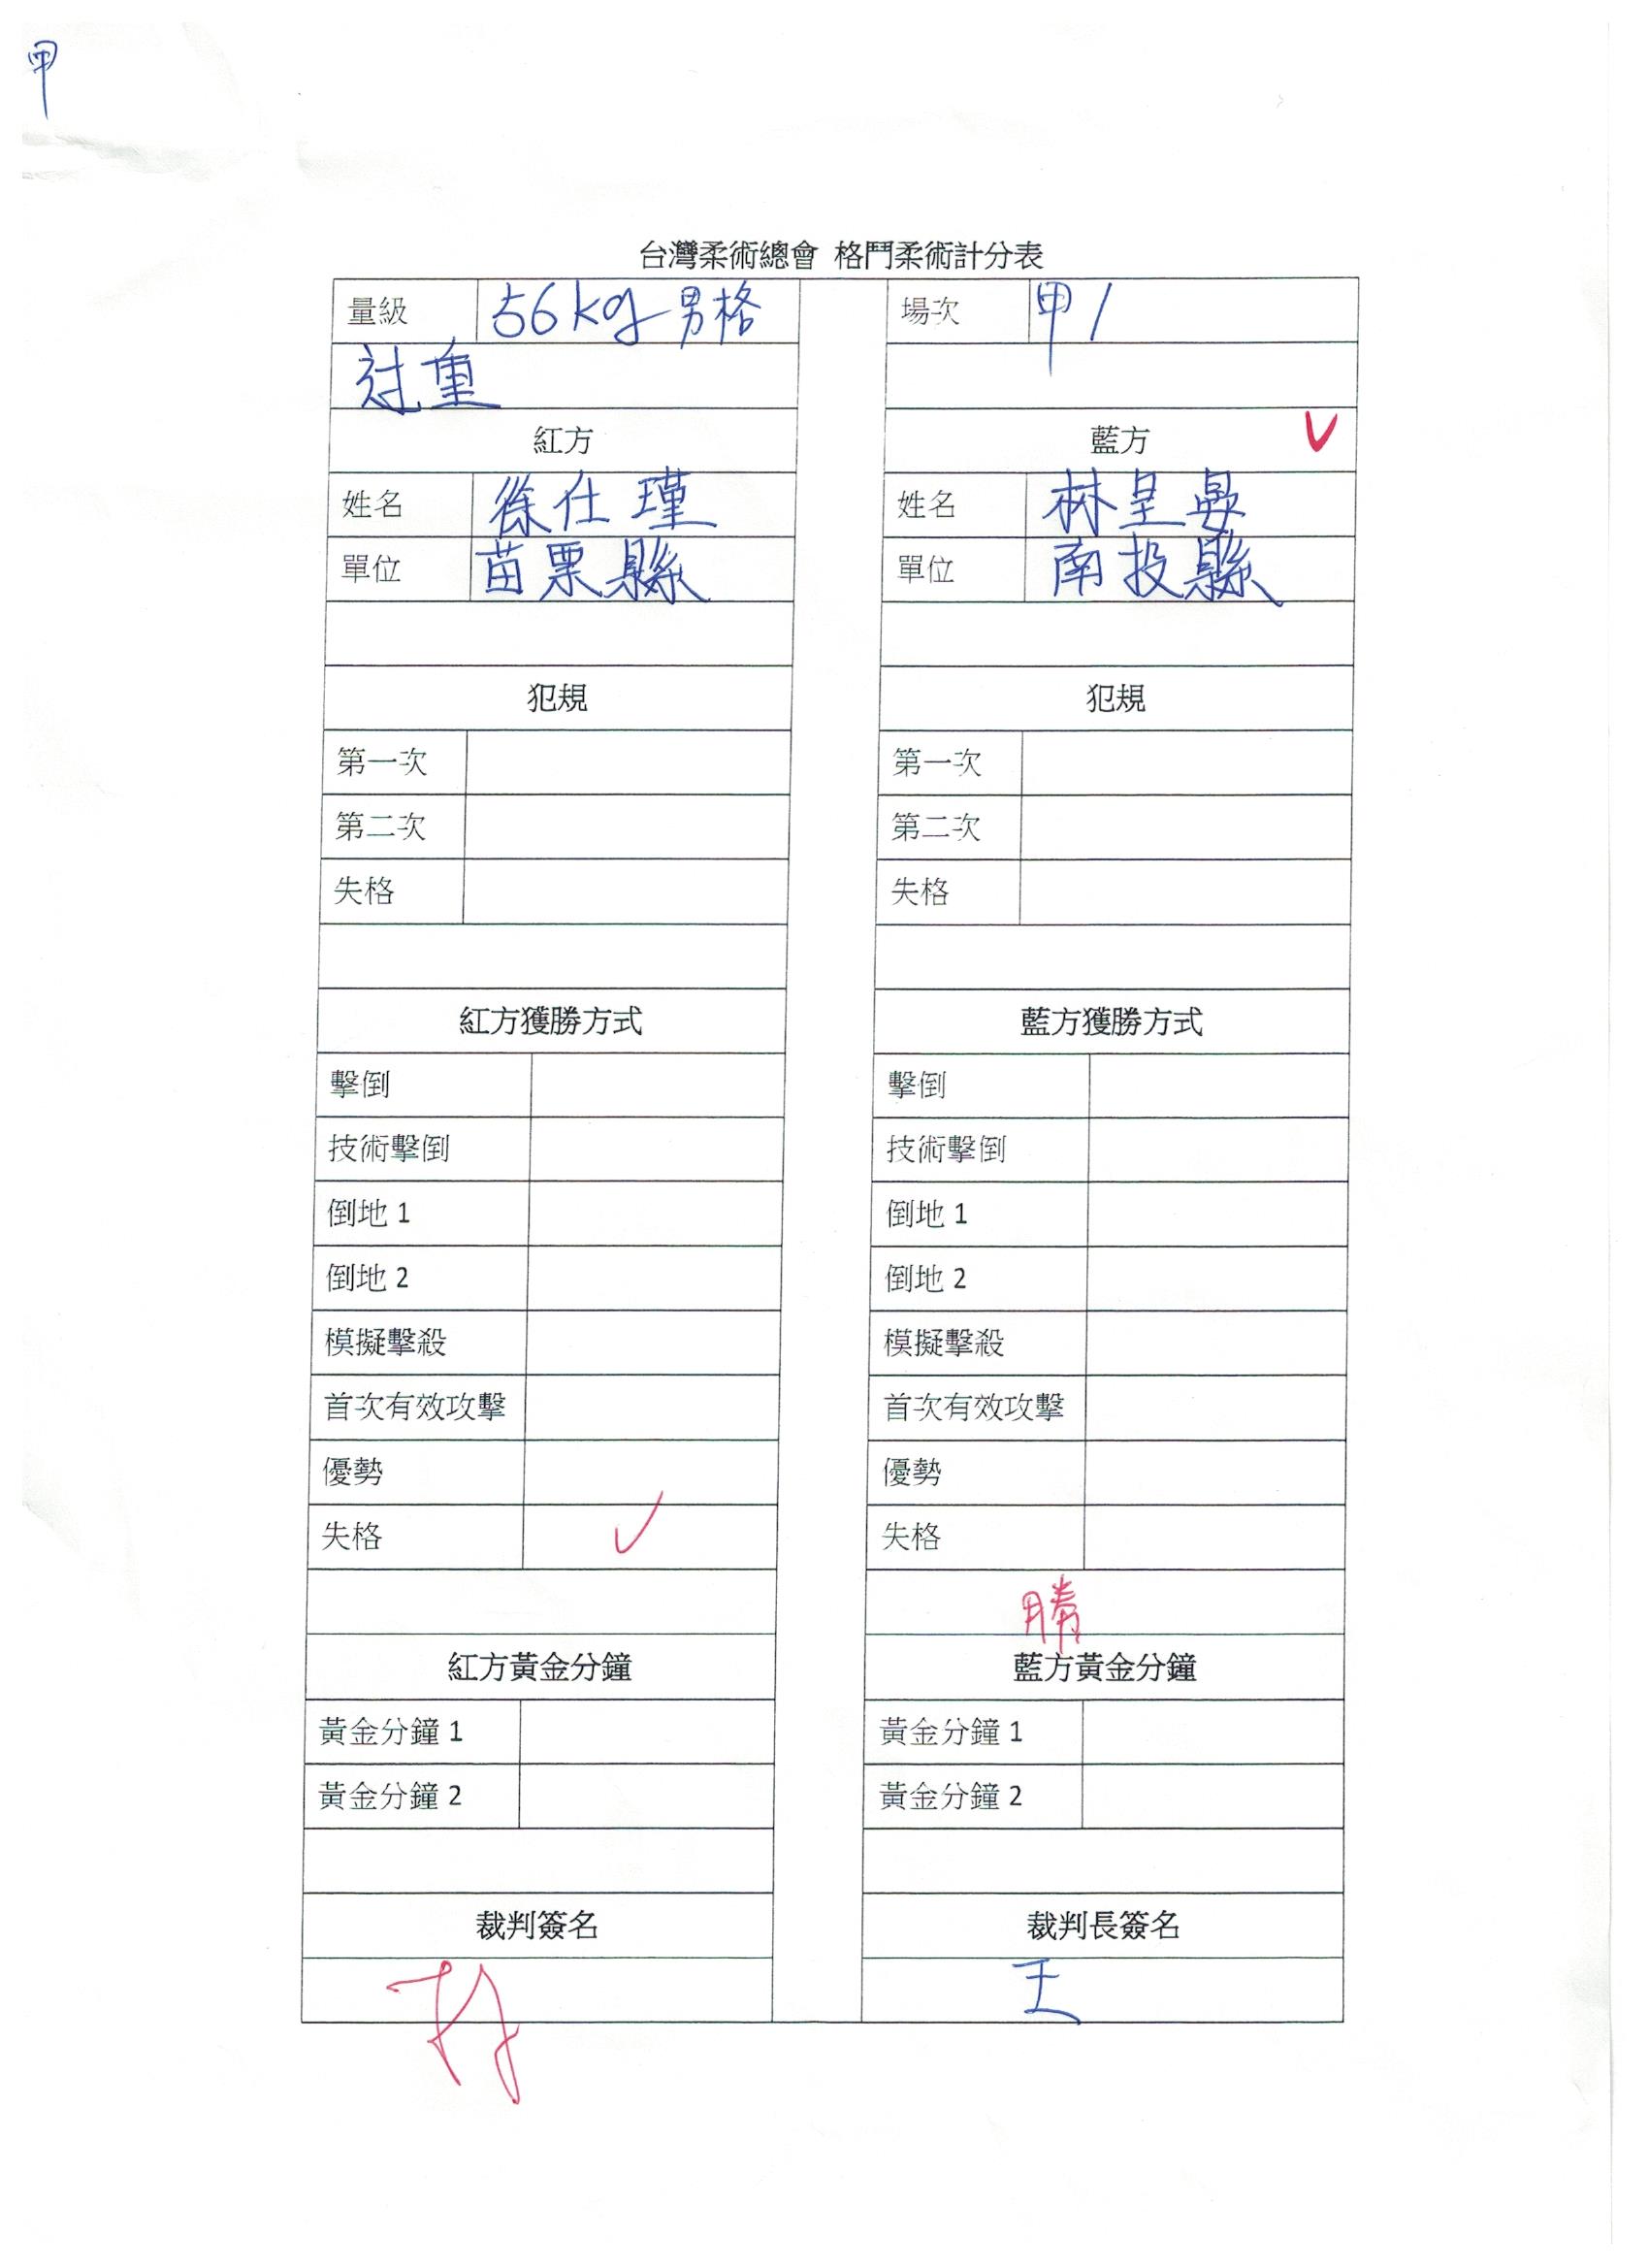 甲
台灣柔術總會 格鬥柔術計分表
量級 56kg 男格 場次 甲1
过重
紅方 藍方
姓名 徐仕瑾 姓名 林呈晏
單位 苗栗縣 單位 南投縣
犯規 犯規
第一次 第一次
第二次 第二次
失格 失格
紅方獲勝方式 藍方獲勝方式
擊倒 擊倒
技術擊倒 技術擊倒
倒地 1 倒地 1
倒地 2 倒地 2
模擬擊殺 模擬擊殺
首次有效攻擊 首次有效攻擊
優勢 優勢
失格 失格
勝
紅方黃金分鐘 藍方黃金分鐘
黃金分鐘 1 黃金分鐘 1
黃金分鐘 2 黃金分鐘 2
裁判簽名 裁判長簽名
王